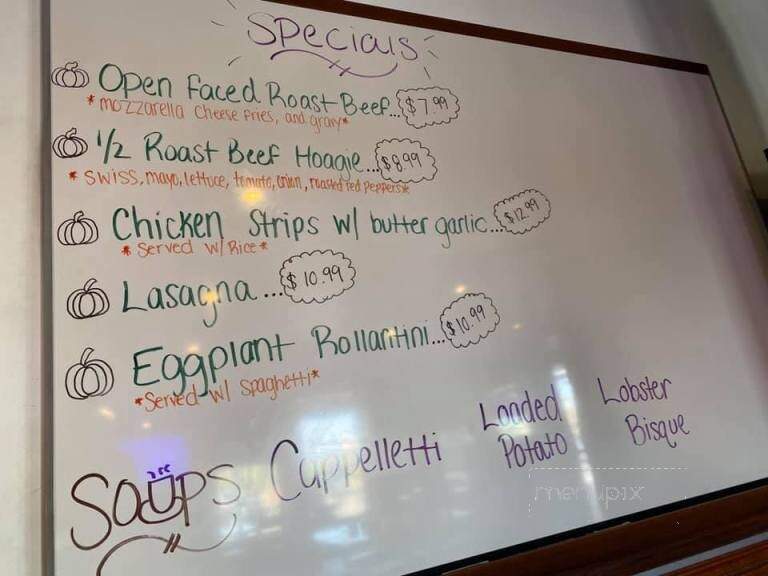 Specials
Open Faced Roast Beef...$7.99
*mozzarella cheese fries, and gravy*
1/2 Roast Beef Hoagie...$8.99
*Swiss, mayo, lettuce, tomato, onion, roasted red peppers*
Chicken Strips w/ butter garlic...$12.99
*Served w/ Rice*
Lasagna...$10.99
Eggplant Rollantini...$10.99
*Served w/ Spaghetti*
Soups Cappelletti
Loaded
Potato
Lobster
Bisque
menupix